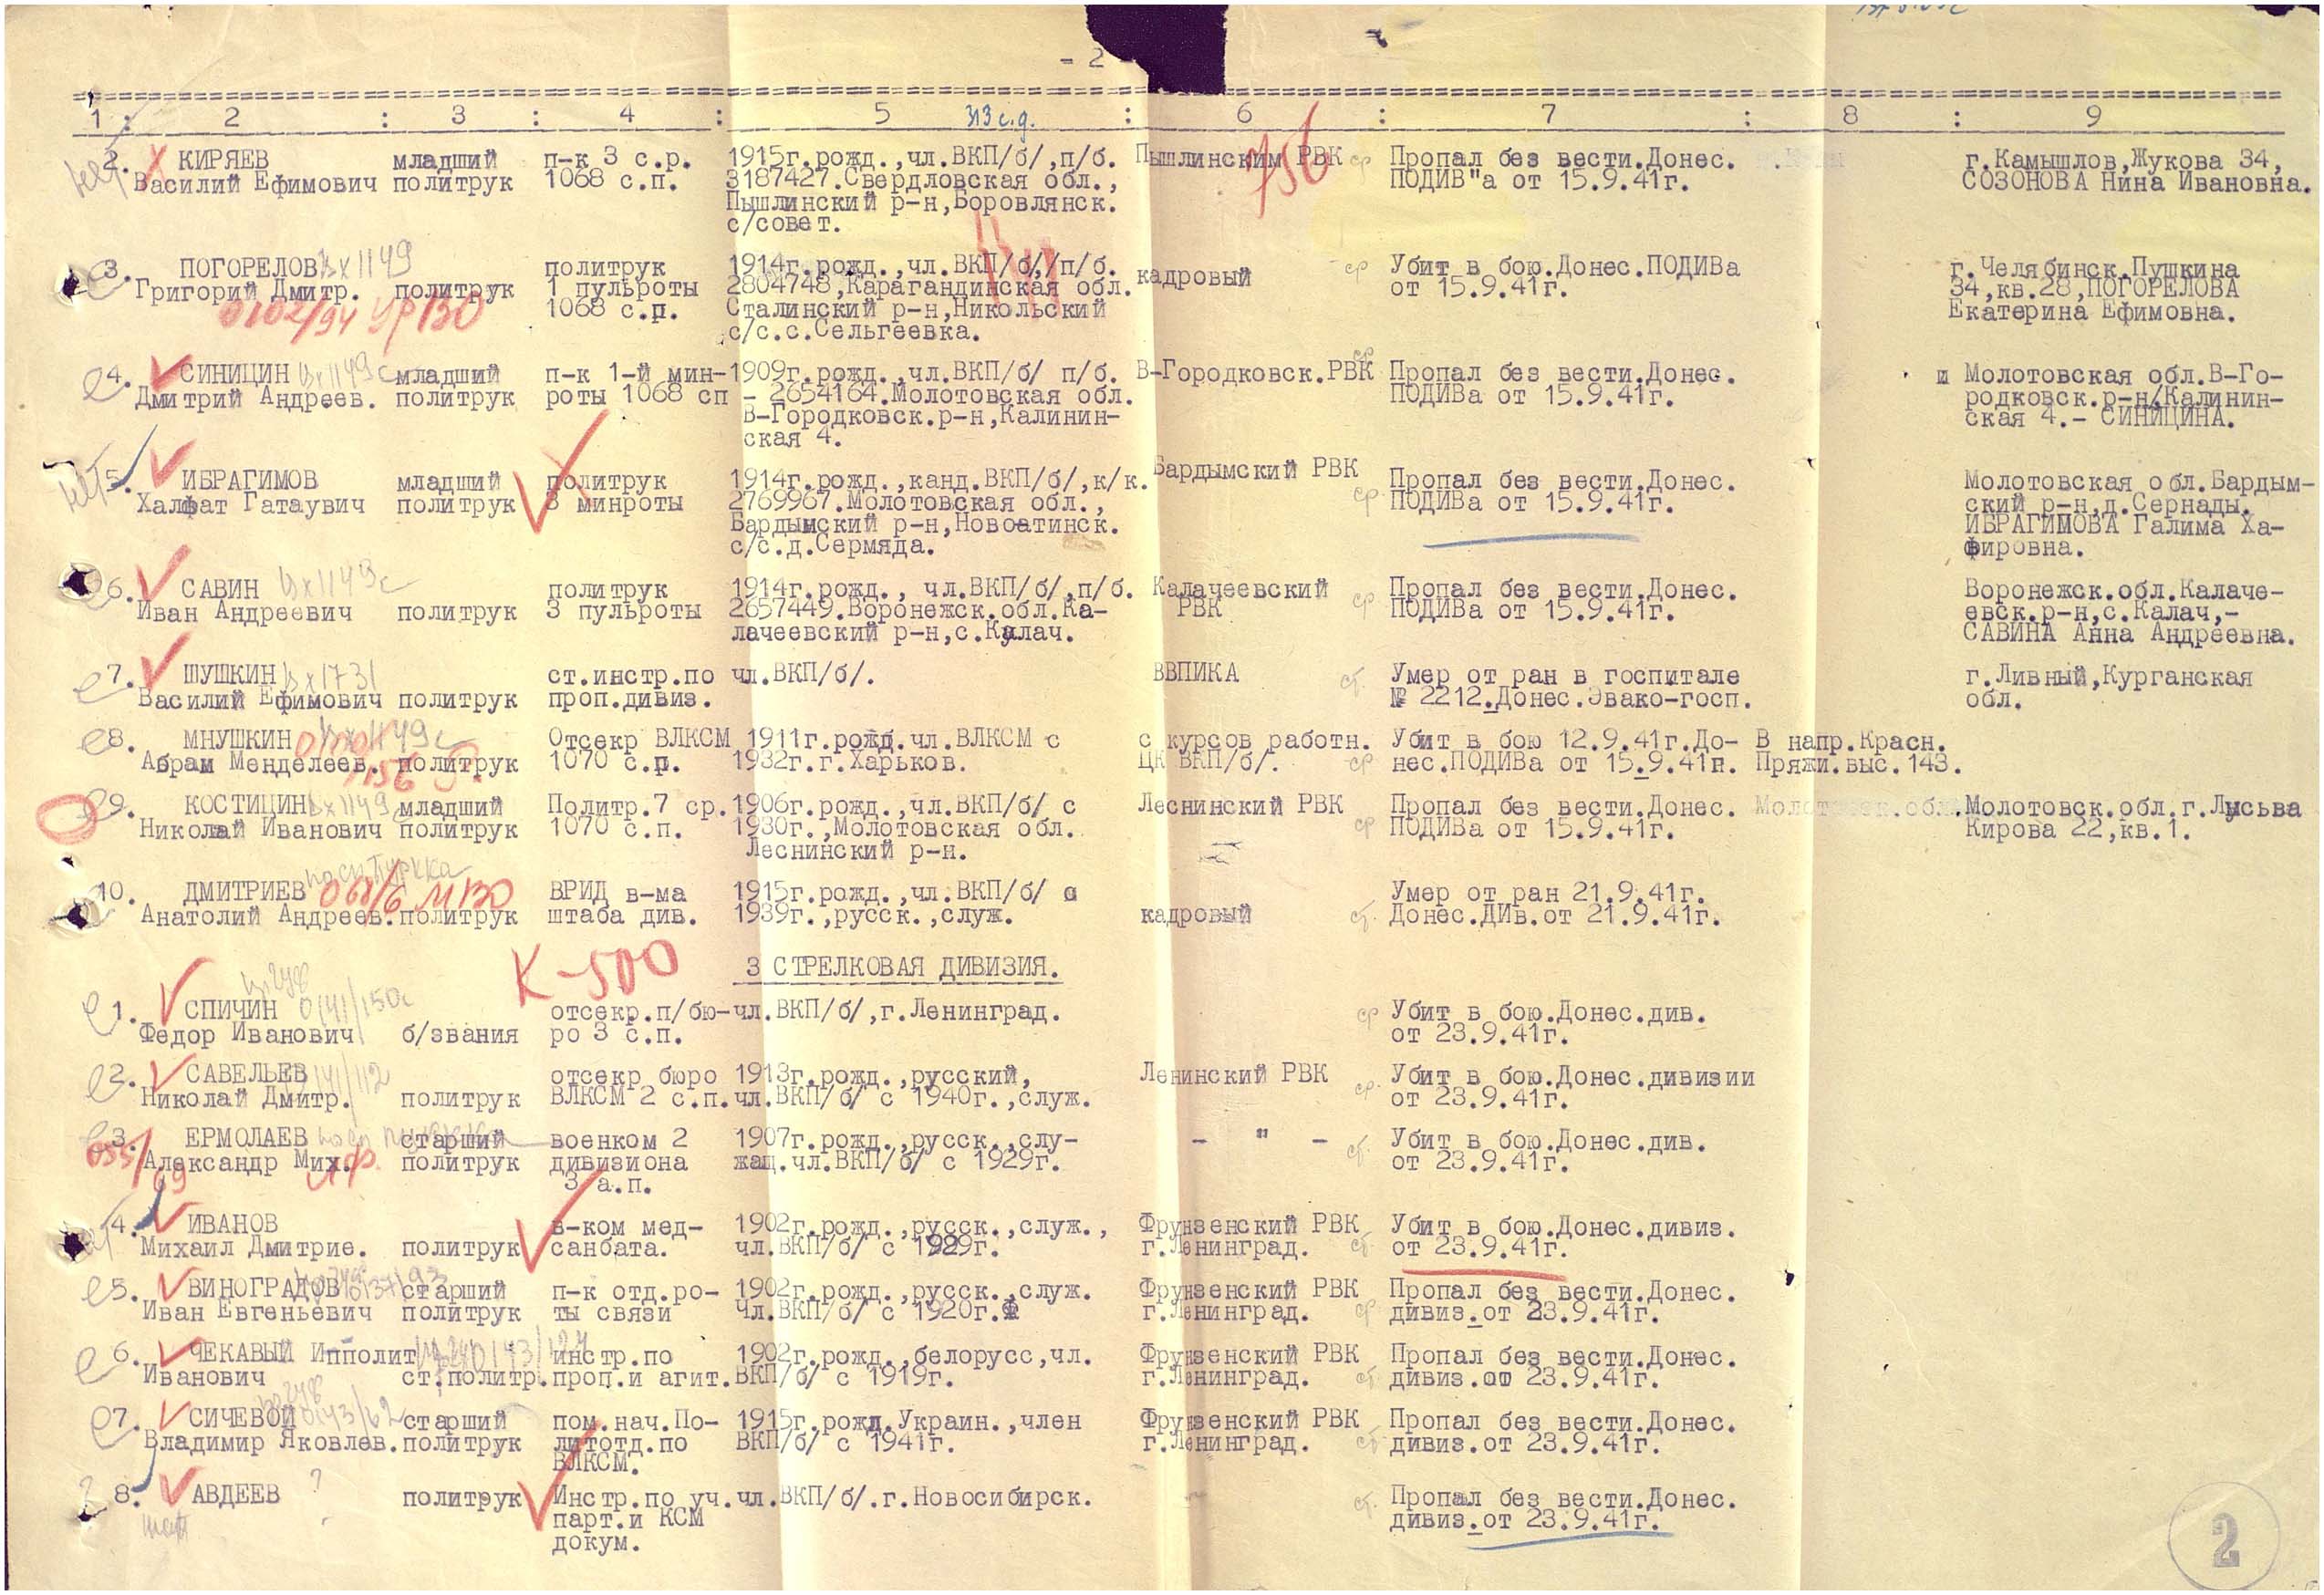 - 2
1 : 2 : 3 : 4 : 5 313 с.д. : 6 : 7 : 8 : 9
2. КИРЯЕВ младший п-к 3 с.р. 1915г.рожд.,чл.ВКП/б/,п/б. Пышлинским РВК ср Пропал без вести.Донес. г.Камышлов,Жукова 34,
Василий Ефимович политрук 1068 с.п. 3187427.Свердловская обл., 756 ПОДИВ"а от 15.9.41г. СОЗОНОВА Нина Ивановна.
Пышлинский р-н,Боровлянск.
с/совет.
3. ПОГОРЕЛОВ Вх1149 политрук 1914г.рожд.,чл.ВКП/б/,/п/б. кадровый ср Убит в бою.Донес.ПОДИВа г.Челябинск.Пушкина
Григорий Дмитр. политрук 1 пульроты 2804748,Карагандинская обл. от 15.9.41г. 34,кв.28,ПОГОРЕЛОВА
0102/94 УрВО 1068 с.п. Сталинский р-н,Никольский Екатерина Ефимовна.
с/с.с.Сельгеевка.
4. СИНИЦИН Вх1149с младший п-к 1-й мин- 1909г.рожд.,чл.ВКП/б/ п/б. В-Городковск.РВК ср Пропал без вести.Донес. и Молотовская обл.В-Го-
Дмитрий Андреев. политрук роты 1068 сп - 2654164.Молотовская обл. ПОДИВа от 15.9.41г. родковск.р-н/Калинин-
В-Городковск.р-н,Калинин- ская 4.- СИНИЦИНА.
ская 4.
5. ИБРАГИМОВ младший политрук 1914г.рожд.,канд.ВКП/б/,к/к. Бардымский РВК Пропал без вести.Донес. Молотовская обл.Бардым-
Халфат Гатаувич политрук 3 минроты 2769967.Молотовская обл., ср ПОДИВа от 15.9.41г. ский р-н,д.Сернады.
Бардымский р-н,Новоатинск. ИБРАГИМОВА Галима Ха-
с/с.д.Сермяда. фировна.
6. САВИН Вх1149с политрук 1914г.рожд., чл.ВКП/б/,п/б. Калачеевский Пропал без вести.Донес. Воронежск.обл.Калаче-
Иван Андреевич политрук 3 пульроты 2657449.Воронежск.обл.Ка- РВК ср ПОДИВа от 15.9.41г. евск.р-н,с.Калач,-
лачеевский р-н,с.Калач. САВИНА Анна Андреевна.
7. ШУШКИН Вх1731 ст.инстр.по чл.ВКП/б/. ВВПИКА ст. Умер от ран в госпитале г.Ливный,Курганская
Василий Ефимович политрук проп.дивиз. № 2212.Донес.Эвако-госп. обл.
8. МНУШКИН Отсекр ВЛКСМ 1911г.рожд.чл.ВЛКСМ с с курсов работн. Убит в бою 12.9.41г.До- В напр.Красн.
Абрам Менделеев. политрук 1070 с.п. 1932г.г.Харьков. ЦК ВКП/б/. ср нес.ПОДИВа от 15.9.41г. Пряжи.выс.143.
9. КОСТИЦИН Вх1149с младший Политр.7 ср. 1906г.рожд.,чл.ВКП/б/ с Леснинский РВК Пропал без вести.Донес. Молотовск.обл.г.Лысьва
Николай Иванович политрук 1070 с.п. 1930г.,Молотовская обл. ср ПОДИВа от 15.9.41г. Кирова 22,кв.1.
Леснинский р-н.
10. ДМИТРИЕВ 068/6 МВО ВРИД в-ма 1915г.рожд.,чл.ВКП/б/ с Умер от ран 21.9.41г.
Анатолий Андреев. политрук штаба див. 1939г.,русск.,служ. кадровый ст. Донес.ДИв.от 21.9.41г.
К-500 3 СТРЕЛКОВАЯ ДИВИЗИЯ.
1. СПИЧИН 0141/150с отсекр.п/бю- чл.ВКП/б/,г.Ленинград. ср Убит в бою.Донес.див.
Федор Иванович б/звания ро 3 с.п. от 23.9.41г.
2. САВЕЛЬЕВ отсекр бюро 1913г.рожд.,русский, Ленинский РВК ср. Убит в бою.Донес.дивизии
Николай Дмитр. политрук ВЛКСМ 2 с.п. чл.ВКП/б/ с 1940г.,служ. от 23.9.41г.
3. ЕРМОЛАЕВ старший военком 2 1907г.рожд.,русск.,слу- - " - Убит в бою.Донес.див.
Александр Мих. политрук дивизиона жащ.чл.ВКП/б/ с 1929г. ст. от 23.9.41г.
3 а.п.
4. ИВАНОВ в-ком мед- 1902г.рожд.,русск.,служ., Фрунзенский РВК Убит в бою.Донес.дивиз.
Михаил Дмитрие. политрук санбата. чл.ВКП/б/ с 1929г. г.Ленинград. ст. от 23.9.41г.
5. ВИНОГРАДОВ старший п-к отд.ро- 1902г.рожд.,русск.,служ. Фрунзенский РВК Пропал без вести.Донес.
Иван Евгеньевич политрук ты связи Чл.ВКП/б/ с 1920г. г.Ленинград. ср дивиз.от 23.9.41г.
6. ЧЕКАВЫЙ Ипполит инстр.по 1902г.рожд.,белорусс,чл. Фрунзенский РВК Пропал без вести.Донес.
Иванович ст.политр. проп.и агит. ВКП/б/ с 1919г. г.Ленинград. ст. дивиз.от 23.9.41г.
7. СИЧЕВОЙ старший пом.нач.По- 1915г.рожд.Украин.,член Фрунзенский РВК Пропал без вести.Донес.
Владимир Яковлев. политрук литотд.по ВКП/б/ с 1941г. г.Ленинград. ст дивиз.от 23.9.41г.
ВЛКСМ.
8. АВДЕЕВ ? политрук Инстр.по уч. чл.ВКП/б/.г.Новосибирск. ст. Пропал без вести.Донес.
парт.и КСМ дивиз.от 23.9.41г.
докум.
2